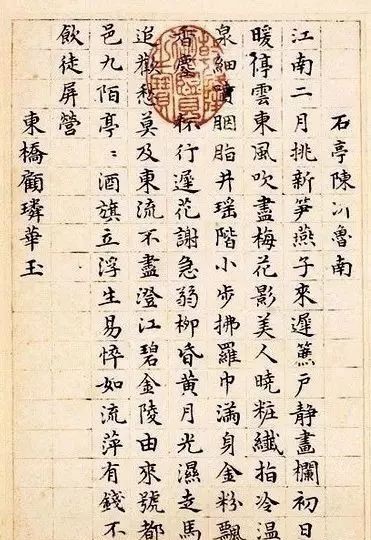 石亭陳沂魯南
江南二月挑新笋燕子來遲簾戶靜畫欄初日
暖停雲東風吹盡梅花影美人曉粧纖指冷溫
泉細噴胭脂井瑤階小步拂羅巾滿身金粉飄
香塵杯行遲花謝急弱柳昏黃月光濕走馬
追歡愁莫及東流不盡澄江碧金陵由來號都
邑九陌亭〻酒旗立浮生易悴如流萍有錢不
飲徒屏營
東橋顧璘華玉